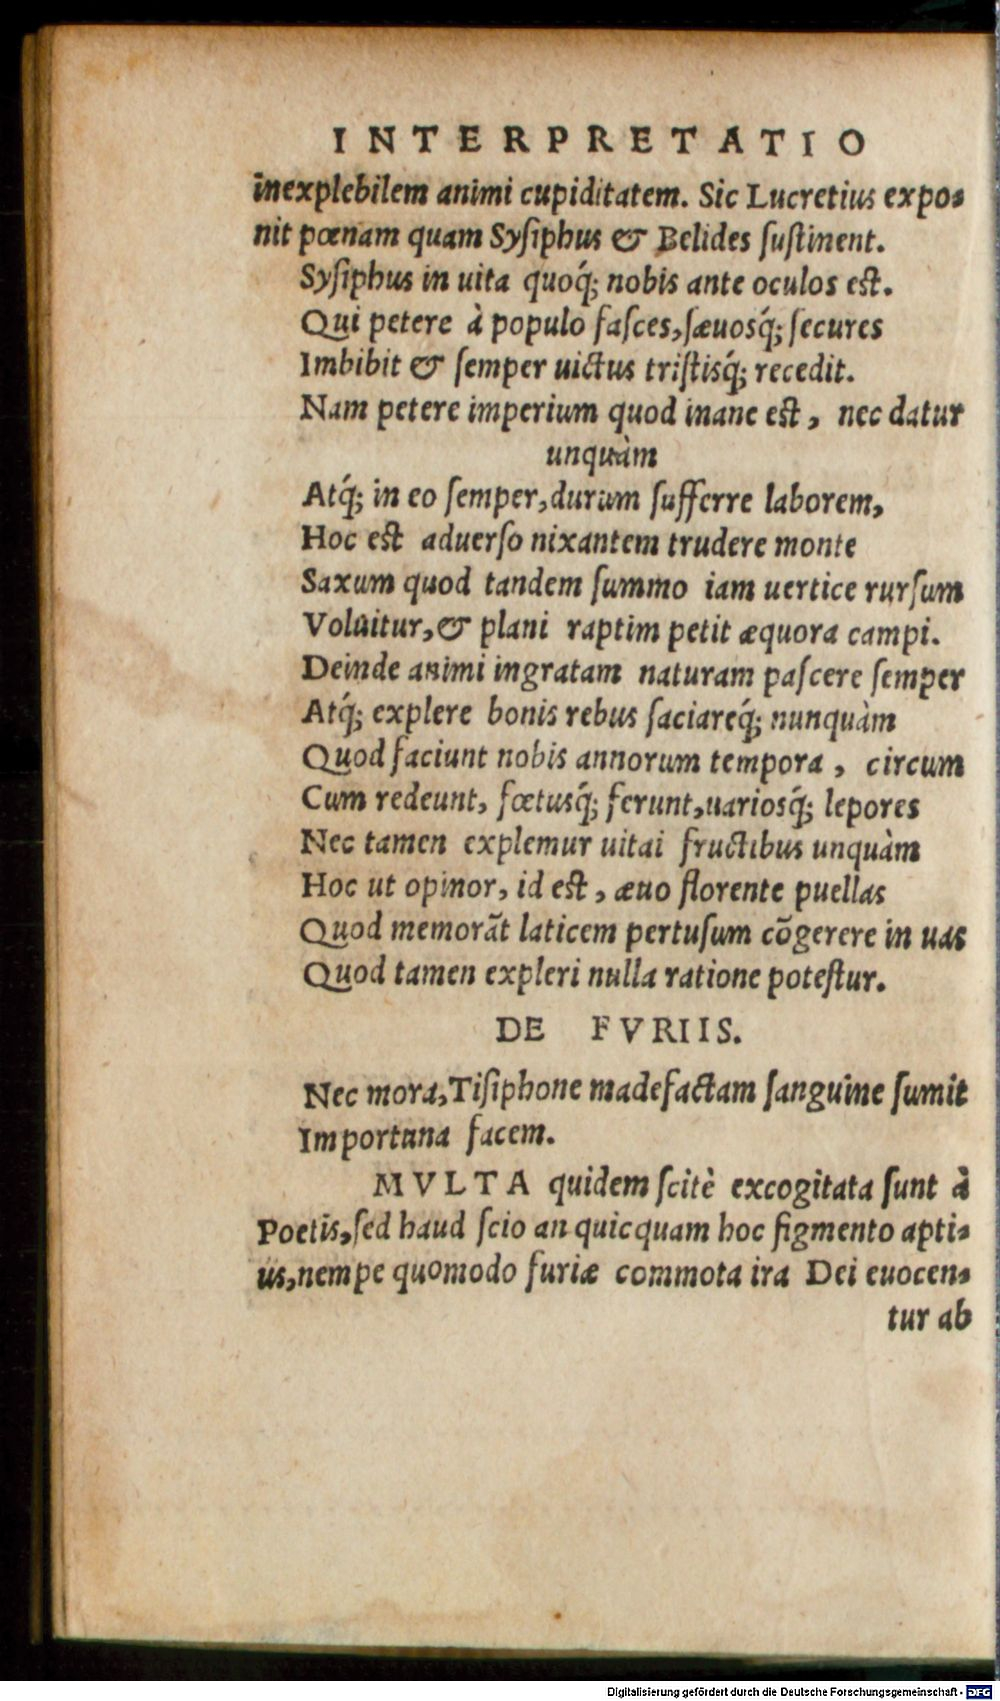 INTERPRETATIO
inexplebilem animi cupiditatem. Sic Lucretius expo-
nit pœnam quam Sysiphus & Belides ſuſtinent.
Syſiphus in uita quoq́; nobis ante oculos eſt.
Qui petere à populo faſces, ſæuosq́; ſecures
Imbibit & ſemper uictus triſtisq́; recedit.
Nam petere imperium quod inane eſt, nec datur
unquàm
Atq́; in eo ſemper, durum ſufferre laborem,
Hoc eſt aduerſo nixantem trudere monte
Saxum quod tandem ſummo iam uertice rurſum
Voluitur, & plani raptim petit æquora campi.
Deinde animi ingratam naturam paſcere ſemper
Atq́; explere bonis rebus ſaciareq́; nunquàm
Quod faciunt nobis annorum tempora, circum
Cum redeunt, fœtusq́; ferunt, uariosq́; lepores
Nec tamen explemur uitai fructibus unquàm
Hoc ut opinor, id eſt, æuo florente puellas
Quod memorãt laticem pertuſum cõgerere in uas
Quod tamen expleri nulla ratione poteſtur.
DE FVRIIS.
Nec mora, Tiſiphone madefactam ſanguine ſumit
Importuna facem.
MVLTA quidem ſcitè excogitata ſunt à
Poetis, ſed haud ſcio an quicquam hoc figmento apti-
us, nempe quomodo furiæ commota ira Dei euocen-
tur ab
Digitalisierung gefördert durch die Deutsche Forschungsgemeinschaft - DFG